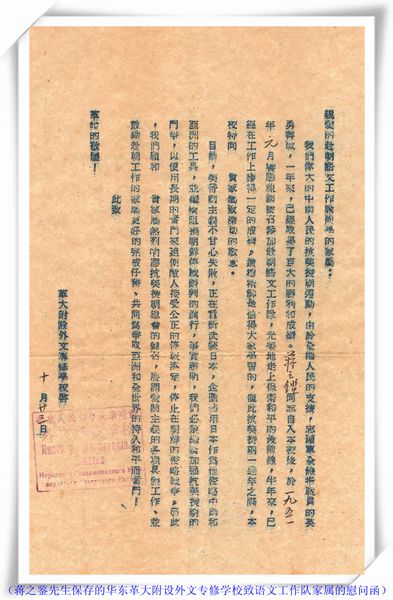 親愛的赴朝語文工作隊隊員的家屬：
我們偉大的中國人民的抗美援朝運動，由於全國人民的支援，志願軍全體指戰員的英
勇奮戰，一年來，已經取得了巨大的勝利和成績。蔣之鏗同志自入本校後，於一九五一
年元月響應祖國號召參加赴朝語文工作隊，光榮地走上保衛和平的最前線，半年來，已
經在工作上獲得一定的成績，這種精神是值得大家學習的，值此抗美援朝一週年之際，本
校特向 貴家屬致深切的敬意。
目前，美帝國主義不甘心失敗，正在重新武裝日本，企圖占用日本作爲侵略中國和
亞洲的工具，並繼續阻撓朝鮮停戰談判的進行，事實證明，我們必須繼續加強抗美援朝的
鬥爭，以便用長期的奮鬥來迫使敵人接受公正的停戰協定，停止在朝鮮的侵略戰爭。因此
，我們願和 貴家屬熱烈地響應抗美援朝總會的號召，展開愛國主義的各項具體工作、並
鼓勵赴朝工作的家屬更好的完成任務、共同爲爭取亞洲和全世界的持久和平而奮鬥！
此致
革命的敬禮！
革大附設外文專修學校啓
十月廿 日
（蒋之鉴先生保存的华东革大附设外文专修学校致语文工作队家属的慰问函）